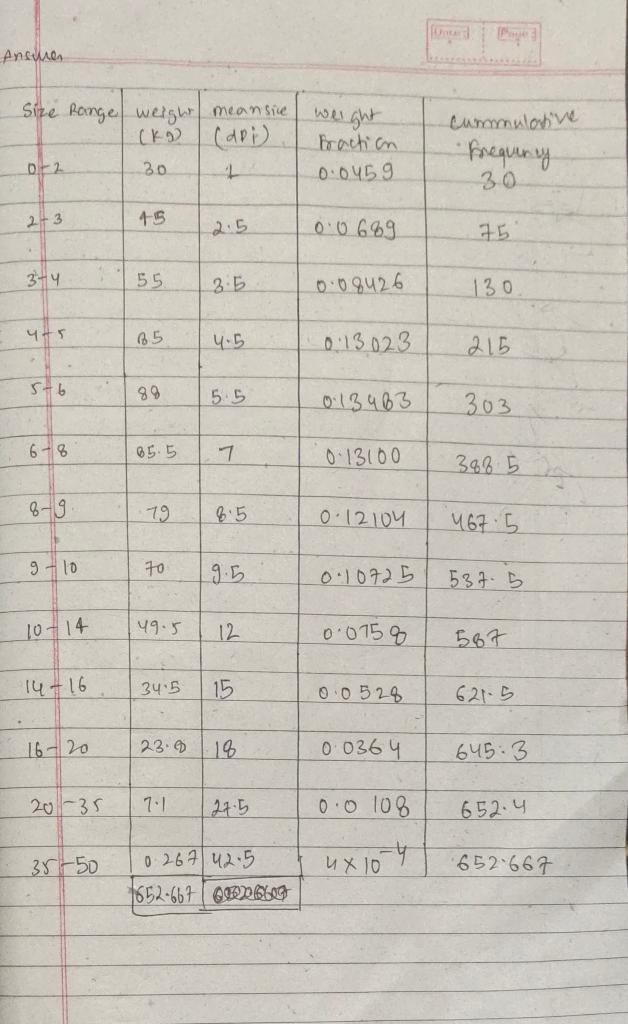 Answer
Size Range weight meansize weight cummulative
(Kg) (dpi) Fraction frequency
0-2 30 1 0.0459 30
2-3 45 2.5 0.0689 75
3-4 55 3.5 0.08426 130
4-5 85 4.5 0.13023 215
5-6 88 5.5 0.13483 303
6-8 85.5 7 0.13100 388.5
8-9 79 8.5 0.12104 467.5
9-10 70 9.5 0.10725 537.5
10-14 49.5 12 0.0758 587
14-16 34.5 15 0.0528 621.5
16-20 23.8 18 0.0364 645.3
20-35 7.1 27.5 0.0108 652.4
35-50 0.267 42.5 4×10⁻⁴ 652.667
652.667